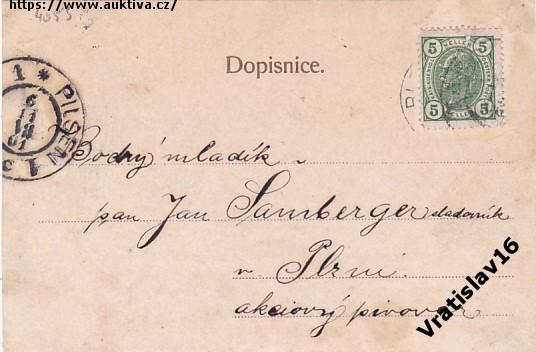 https://www.auktiva.cz/
Dopisnice.
5 HELLER 5
5 HELLER 5
1 * PILSEN 1
Bodrý mladík
pan Jan Samberger sladovník
v Plzni.
akciový pivovar
Vratislav16